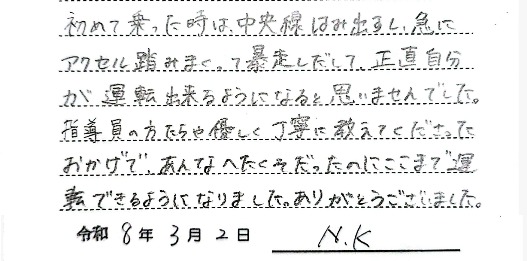 初めて乗った時は、中央線はみ出すし、急に
アクセル踏みまくって暴走しだして、正直自分
が運転出来るようになると思いませんでした。
指導員の方たちや優しく丁寧に教えてくださった
おかげで、あんなへたくそだったのにここまで運
転できるようになりました。ありがとうございました。
令和 8 年 3 月 2 日 N.K